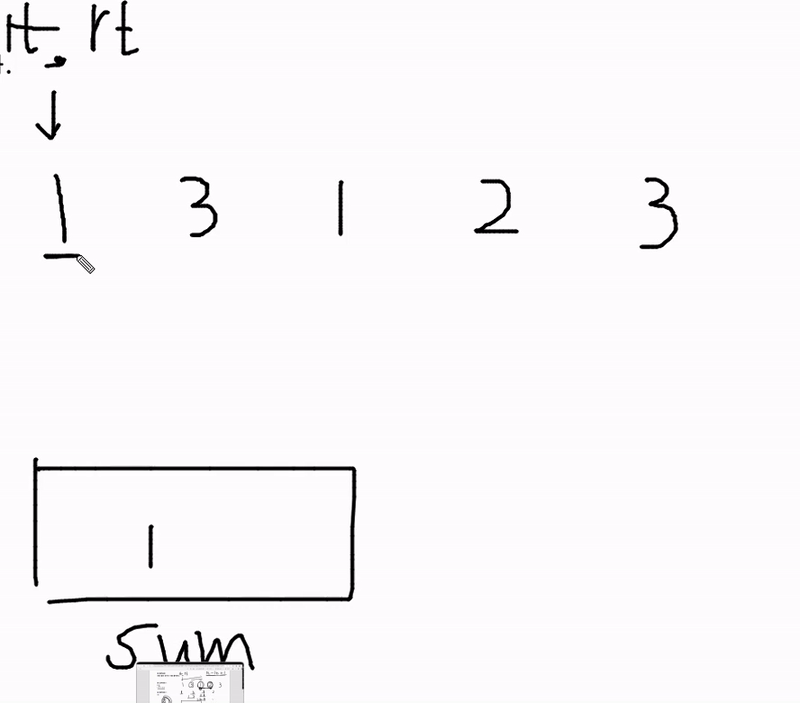 lt, rt
1 3 1 2 3
1
sum